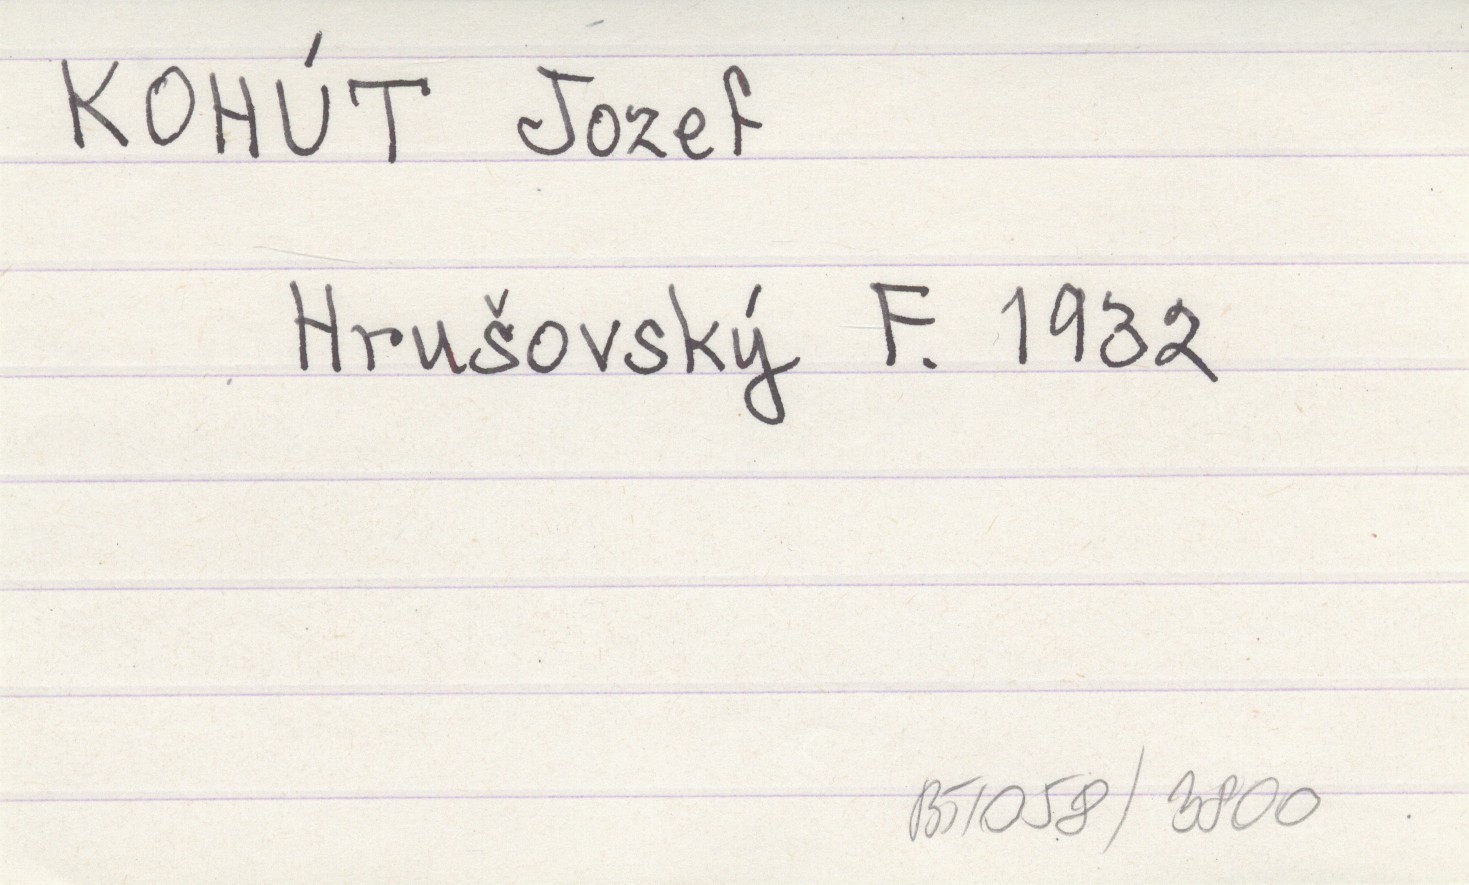 KOHÚT Jozef
Hrušovský F. 1932
B51058/3800